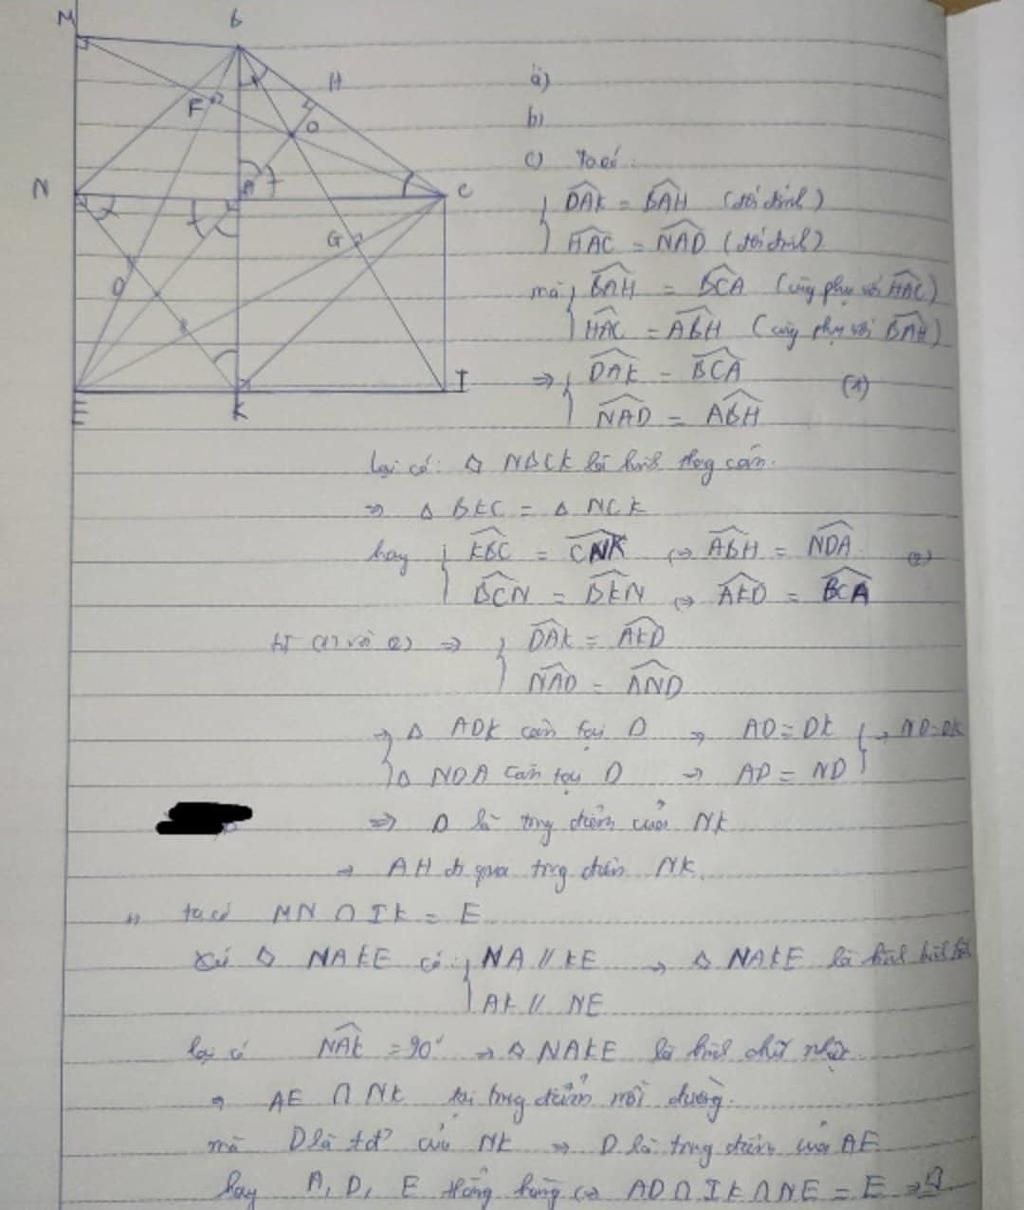 M
B
H
F
O
N
A
C
G
D
E
K
I
a)
b)
c) Ta có:
DAK = BAH (đối đỉnh)
HAC = NAD (đối đỉnh)
mà BAH = BCA (cùng phụ với HAC)
HAC = ABH (cùng phụ với BAH)
⇒ DAK = BCA (1)
NAD = ABH
lại có: ◇ NBCK là hình thang cân.
⇒ △ BKC = △ NCK
hay KBC = CNK ⇔ ABH = NDA (2)
BCN = BKN ⇔ AKD = BCA
từ (1) và (2) ⇒ DAK = AKD
NAD = AND
⇒ △ ADK cân tại D ⇒ AD = DK ⇒ ND = DK
△ NDA cân tại D ⇒ AD = ND
⇒ D là trung điểm của NK
⇒ AH đi qua trung điểm NK.
ta có MN ∩ IK = E
Xét ◇ NAKE có: NA // KE ⇒ ◇ NAKE là hình bình
AK // NE
lại có NAK = 90° ⇒ ◇ NAKE là hình chữ nhật
⇒ AE ∩ NK tại trung điểm mỗi đường.
mà D là tđ' của NK ⇒ D là trung điểm của AE
hay A, D, E thẳng hàng ⇔ AD ∩ IK ∩ NE = E ⇒